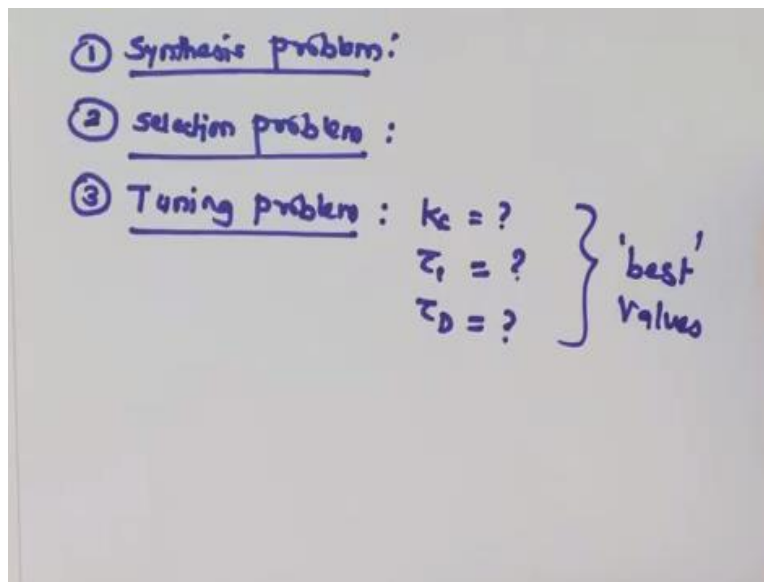 ① Synthesis problem:
② selection problem :
③ Tuning problem : Kc = ?
τI = ?
τD = ?
'best'
Values